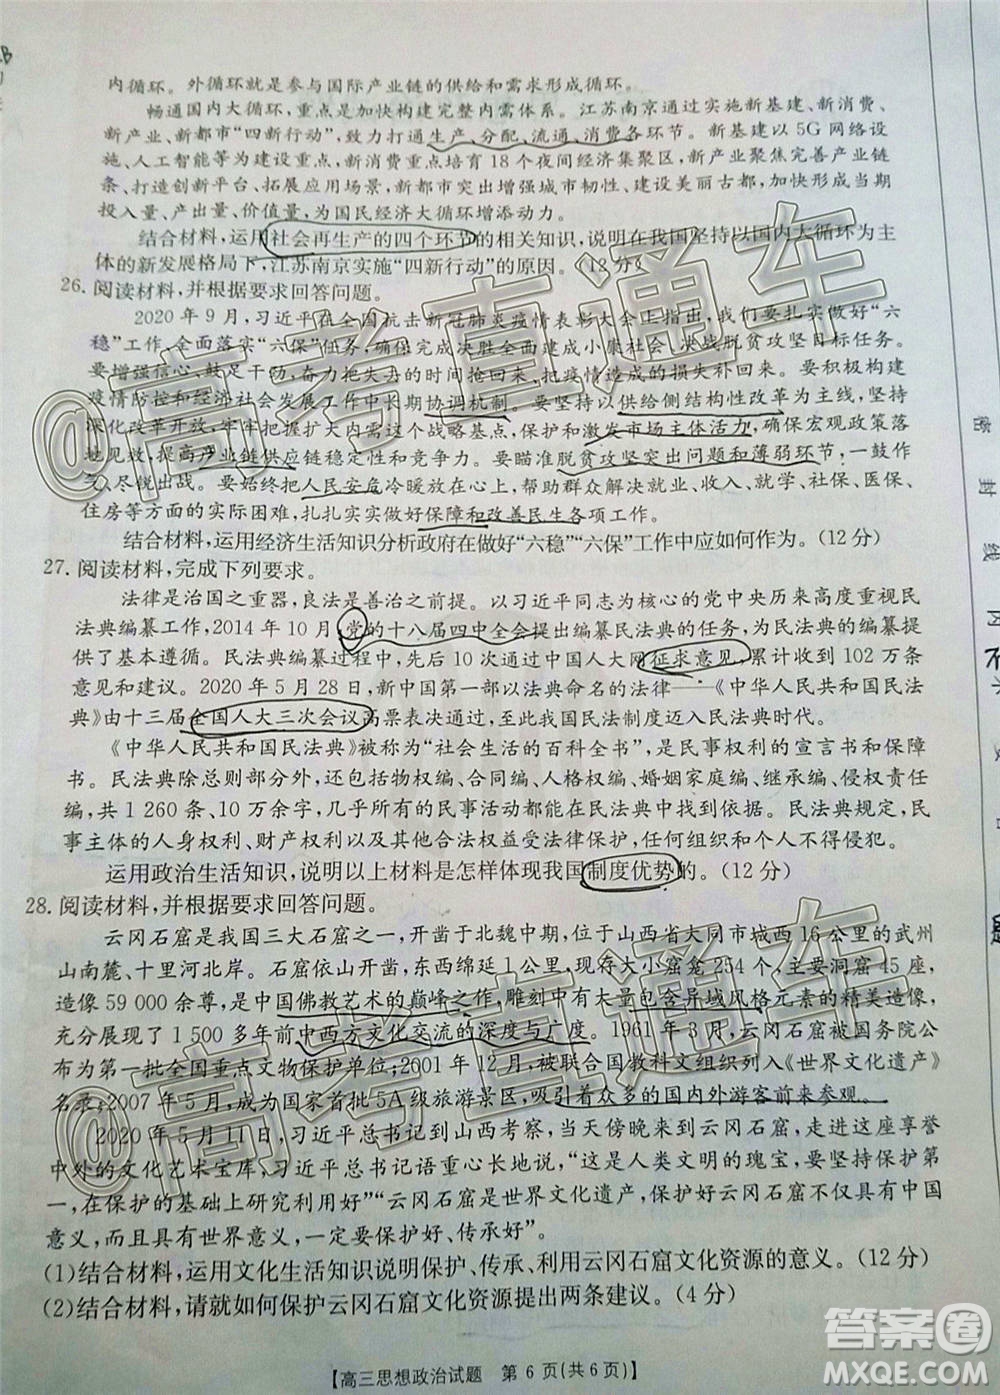 内循环。外循环就是参与国际产业链的供给和需求形成循环。
畅通国内大循环,重点是加快构建完整内需体系。江苏南京通过实施新基建、新消费、
新产业、新都市“四新行动”,致力打通生产、分配、流通、消费各环节。新基建以 5G 网络设
施、人工智能等为建设重点,新消费重点培育 18 个夜间经济集聚区,新产业聚焦完善产业链
条、打造创新平台、拓展应用场景,新都市突出增强城市韧性、建设美丽古都,加快形成当期
投入量、产出量、价值量,为国民经济大循环增添动力。
结合材料,运用社会再生产的四个环节的相关知识,说明在我国坚持以国内大循环为主
体的新发展格局下,江苏南京实施“四新行动”的原因。(12 分)
26. 阅读材料,并根据要求回答问题。
2020 年 9 月,习近平在全国抗击新冠肺炎疫情表彰大会上指出,我们要扎实做好“六
稳”工作,全面落实“六保”任务,确保完成决胜全面建成小康社会、决战脱贫攻坚目标任务。
要坚定信心,鼓足干劲,奋力把失去的时间抢回来,把疫情造成的损失补回来。要抓紧完善
疫情防控和经济社会发展工作中长期协调机制。要坚持以供给侧结构性改革为主线,坚持
深化改革开放,牢牢把握扩大内需这个战略基点,保护和激发市场主体活力,确保宏观政策
落地见效,提高产业链供应链稳定性和竞争力。要瞄准脱贫攻坚突出问题和薄弱环节,一鼓作
气、尽锐出战。要始终把人民安危冷暖放在心上,帮助群众解决就业、收入、就学、社保、医保、
住房等方面的实际困难,扎扎实实做好保障和改善民生各项工作。
结合材料,运用经济生活知识分析政府在做好“六稳”“六保”工作中应如何作为。(12 分)
27. 阅读材料,完成下列要求。
法律是治国之重器,良法是善治之前提。以习近平同志为核心的党中央历来高度重视民
法典编纂工作,2014 年 10 月党的十八届四中全会提出编纂民法典的任务,为民法典的编纂提
供了基本遵循。民法典编纂过程中,先后 10 次通过中国人大网征求意见,累计收到 102 万条
意见和建议。2020 年 5 月 28 日,新中国第一部以法典命名的法律——《中华人民共和国民法
典》由十三届全国人大三次会议高票表决通过,至此我国民法制度迈入民法典时代。
《中华人民共和国民法典》被称为“社会生活的百科全书”,是民事权利的宣言书和保障
书。民法典除总则部分外,还包括物权编、合同编、人格权编、婚姻家庭编、继承编、侵权责任
编,共 1 260 条、10 万余字,几乎所有的民事活动都能在民法典中找到依据。民法典规定,
民事主体的人身权利、财产权利以及其他合法权益受法律保护,任何组织和个人不得侵犯。
运用政治生活知识,说明以上材料是怎样体现我国制度优势的。(12 分)
28. 阅读材料,并根据要求回答问题。
云冈石窟是我国三大石窟之一,开凿于北魏中期,位于山西省大同市城西 16 公里的武州
山南麓、十里河北岸。石窟依山开凿,东西绵延 1 公里,现存大小窟龛 254 个,主要洞窟 45 座,
造像 59 000 余尊,是中国佛教艺术的巅峰之作,雕刻中有大量包含异域风格元素的精美造像,
充分展现了 1 500 多年前中西方文化交流的深度与广度。1961 年 3 月,云冈石窟被国务院公
布为第一批全国重点文物保护单位,2001 年 12 月,被联合国教科文组织列入《世界文化遗产》
名录,2007 年 5 月,成为国家首批 5A 级旅游景区,吸引着众多的国内外游客前来参观。
2020 年 5 月 11 日,习近平总书记到山西考察,当天傍晚来到云冈石窟,走进这座享誉
中外的文化艺术宝库,习近平总书记语重心长地说,“这是人类文明的瑰宝,要坚持保护第
一,在保护的基础上研究利用好”“云冈石窟是世界文化遗产,保护好云冈石窟不仅具有中国
意义,而且具有世界意义,一定要保护好、传承好”。
(1)结合材料,运用文化生活知识说明保护、传承、利用云冈石窟文化资源的意义。(12 分)
(2)结合材料,请就如何保护云冈石窟文化资源提出两条建议。(4 分)
【高三思想政治试题 第 6 页(共 6 页)】
密
封
线
内
不
@高考直通车
@高考直通车
答案圈
MXQE.COM